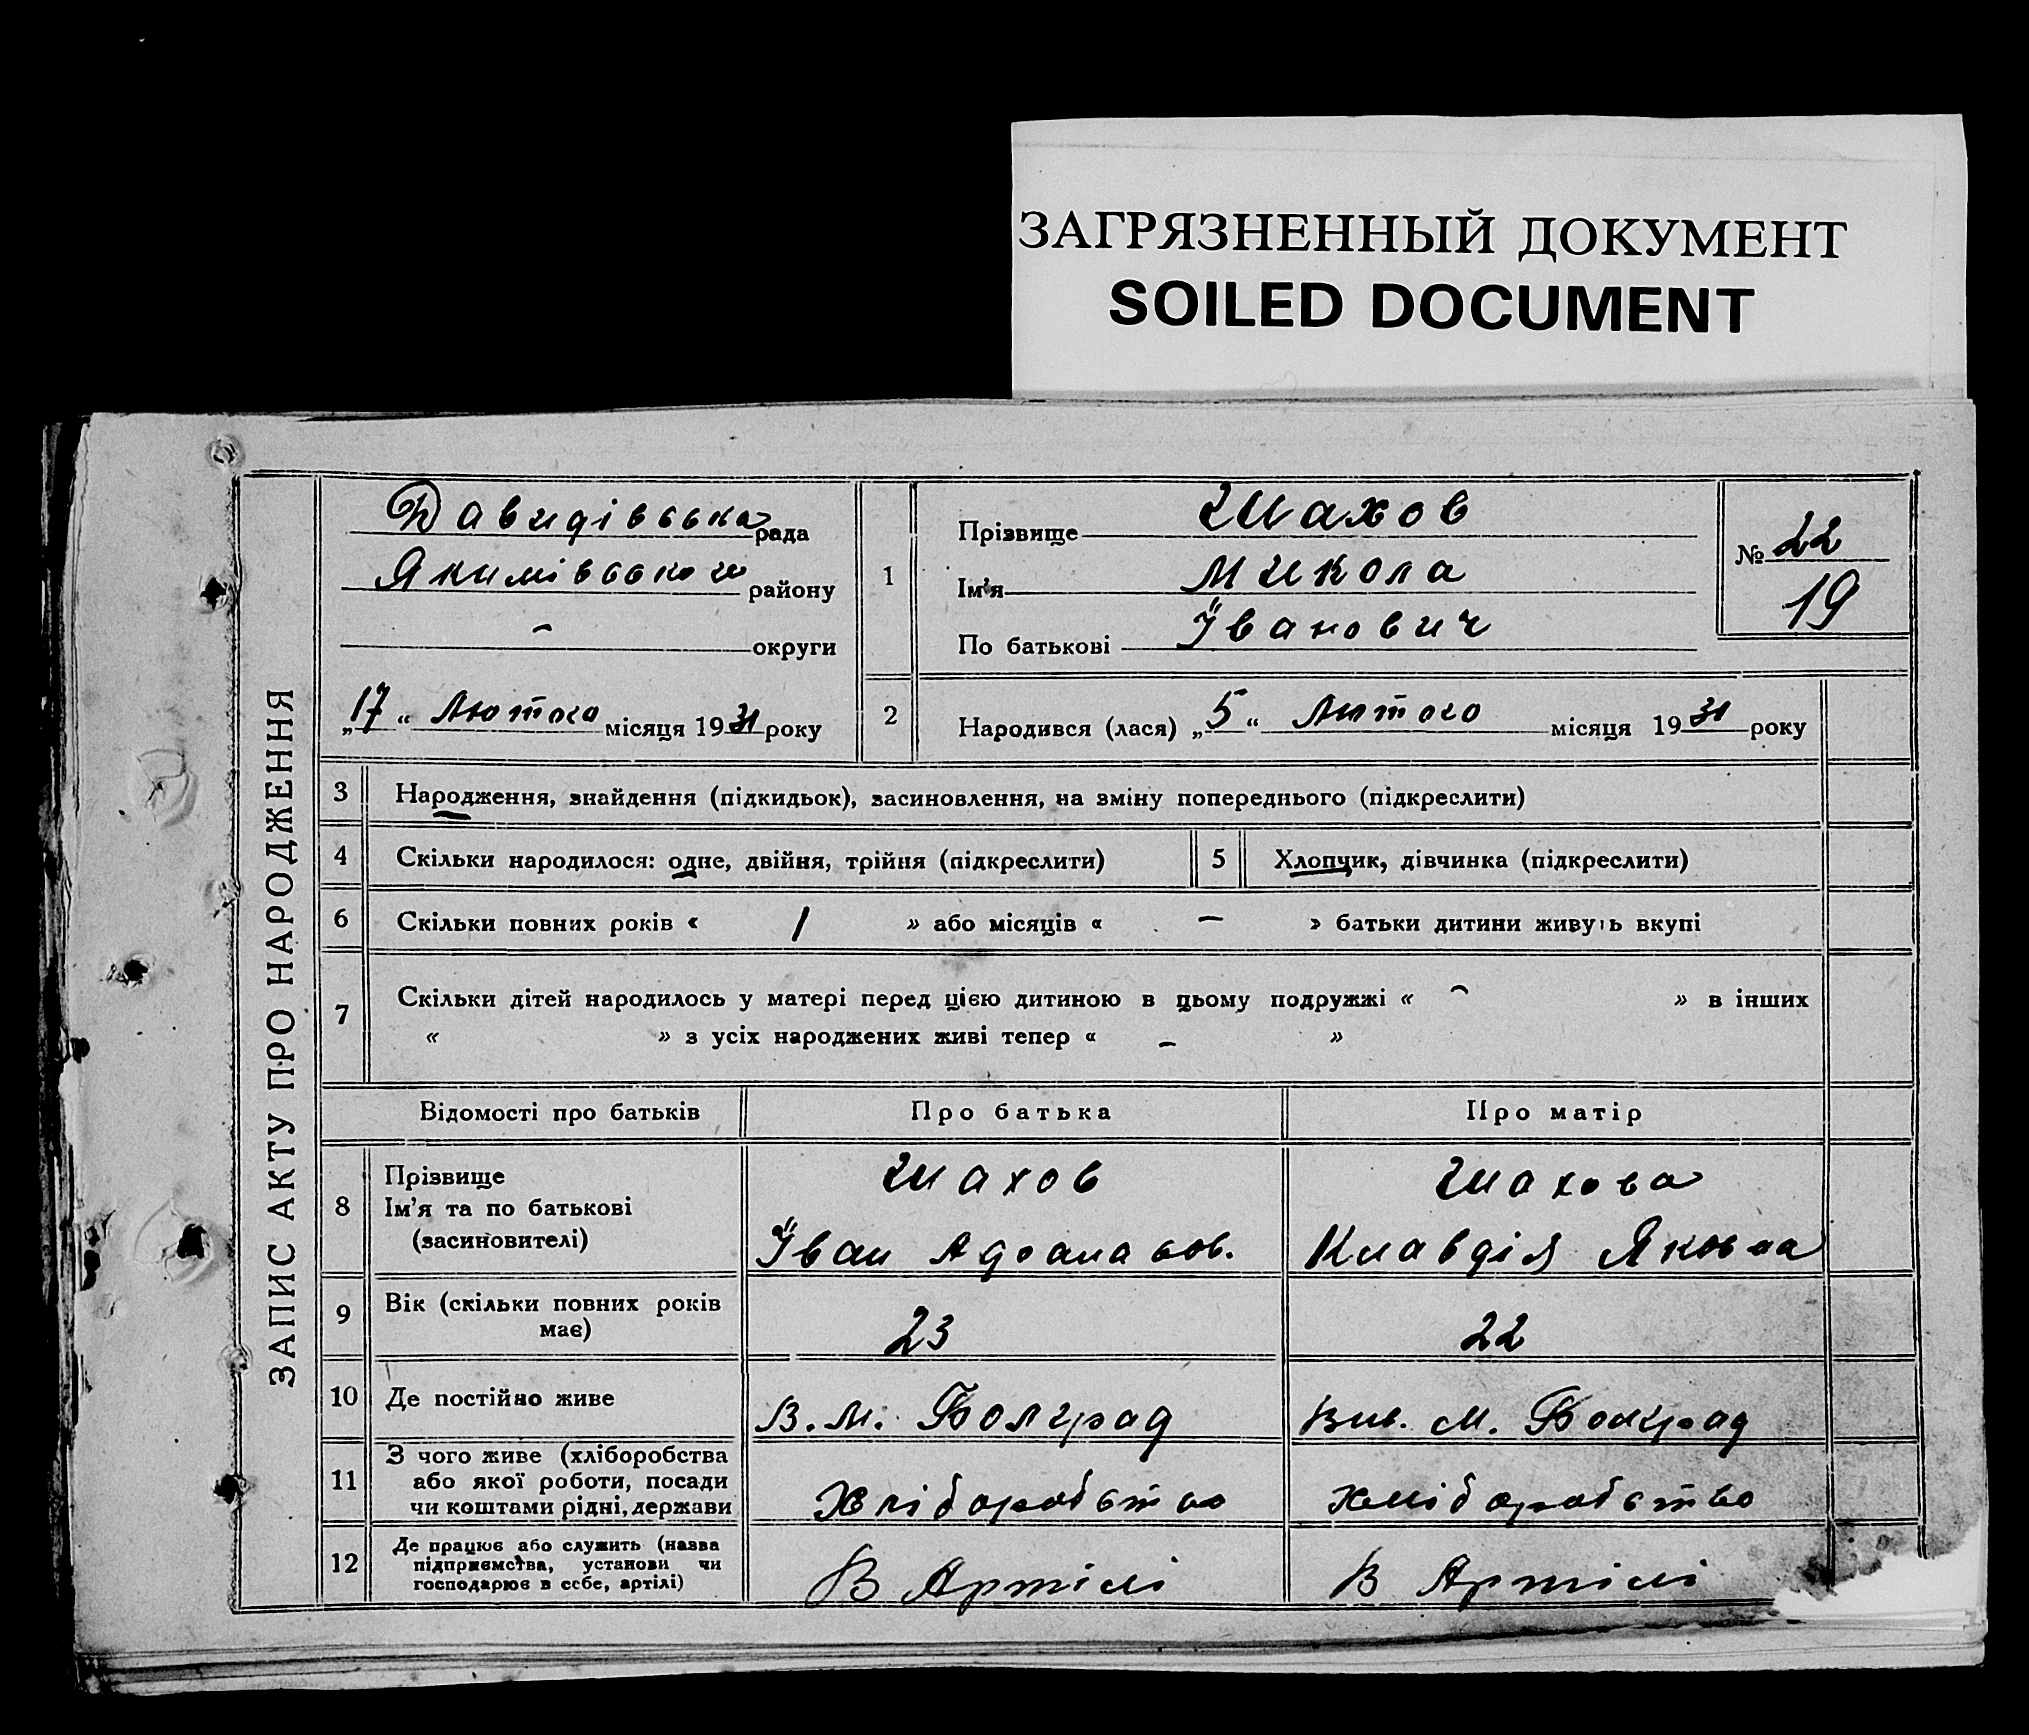 ЗАГРЯЗНЕННЫЙ ДОКУМЕНТ
SOILED DOCUMENT
ЗАПИС АКТУ ПРО НАРОДЖЕННЯ
Давидівська рада
Якимівської району
- округи
„17“ Лютого місяця 1931 року
1
Прізвище Шахов
Ім'я Микола
По батькові Іванович
№ 22
19
2 Народився (лася) „5“ Лютого місяця 1931 року
3 Народження, знайдення (підкидьок), засиновлення, на зміну попереднього (підкреслити)
4 Скільки народилося: одне, двійня, трійня (підкреслити)
5 Хлопчик, дівчинка (підкреслити)
6 Скільки повних років « 1 » або місяців « - » батьки дитини живуть вкупі
7 Скільки дітей народилось у матері перед цією дитиною в цьому подружжі « - » в інших
« » з усіх народжених живі тепер « - »
Відомості про батьків Про батька Про матір
8
Прізвище
Ім'я та по батькові
(засиновителі)
Шахов
Іван Афанасов.
Шахова
Клавдія Яковна
9 Вік (скільки повних років
має)
23
22
10 Де постійно живе
В. М. Болград
Вил. М. Болград
11
З чого живе (хліборобства
або якої роботи, посади
чи коштами рідні, держави
Хліборобство
хліборобство
12
Де працює або служить (назва
підприємства, установи чи
господарює в себе, артілі)
В Артілі
В Артілі